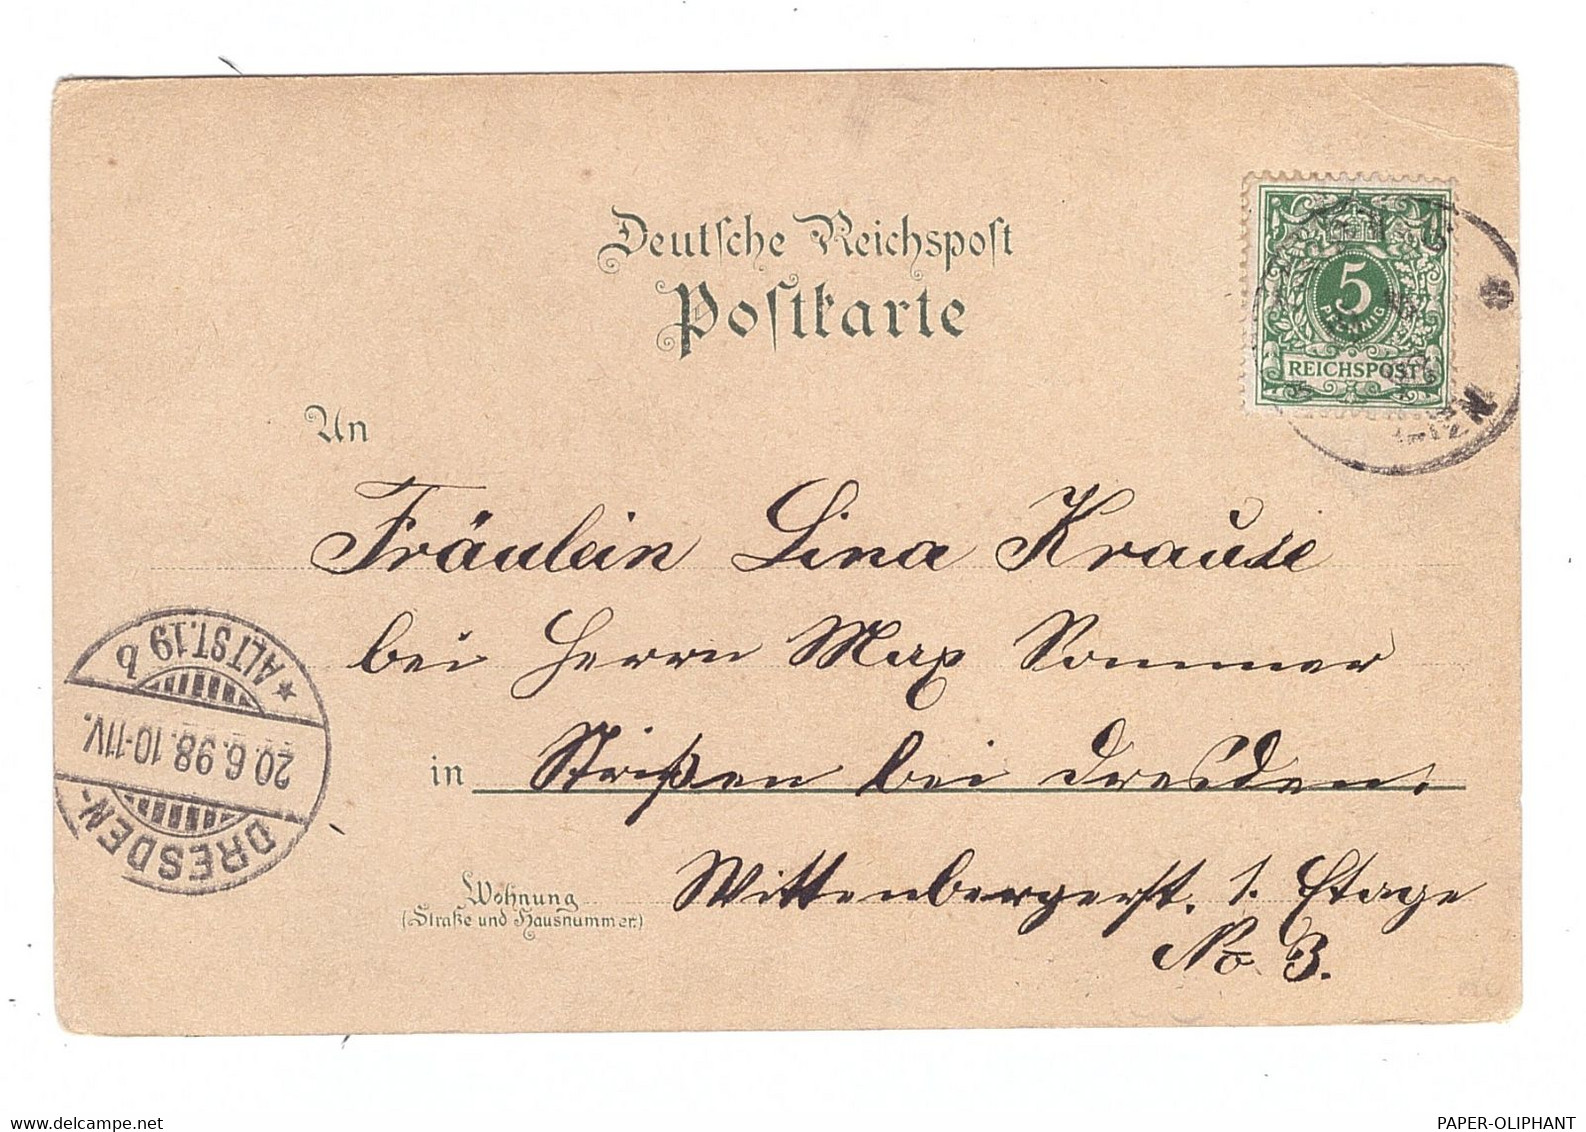 Deutsche Reichspost
Postkarte
5
PFENNIG
REICHSPOST
An
Fräulein Lina Krause
bei Herrn Max Sommer
in Strißen bei Dresden.
Wohnung
(Straße und Hausnummer.)
Wittenbergerst. 1. Etage
No 3.
DRESDEN-
20.6.98.10-11V.
* ALTST.19 b
PAPER-OLIPHANT